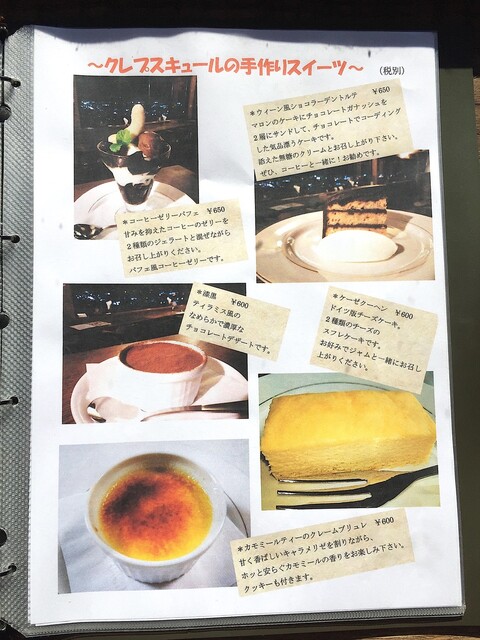 ～クレプスキュールの手作りスイーツ～ （税別）
＊ウィーン風ショコラーデントルテ ￥650
マロンのケーキにチョコレートガナッシュを
2層にサンドして、チョコレートでコーディング
した気品漂うケーキです。
添えた無糖のクリームとお召し上がり下さい。
ぜひ、コーヒーと一緒に！お勧めです。
＊コーヒーゼリーパフェ ￥650
甘みを抑えたコーヒーのゼリーを
2種類のジェラートと混ぜながら
お召し上がりください。
パフェ風コーヒーゼリーです。
＊漆黒 ￥600
ティラミス風の
なめらかで濃厚な
チョコレートデザートです。
＊ケーゼクーヘン ￥600
ドイツ版チーズケーキ。
2種類のチーズの
スフレケーキです。
お好みでジャムと一緒にお召し
上がりください。
＊カモミールティーのクレームブリュレ ￥600
甘く香ばしいキャラメリゼを割りながら、
ホッと安らぐカモミールの香りをお楽しみ下さい。
クッキーも付きます。